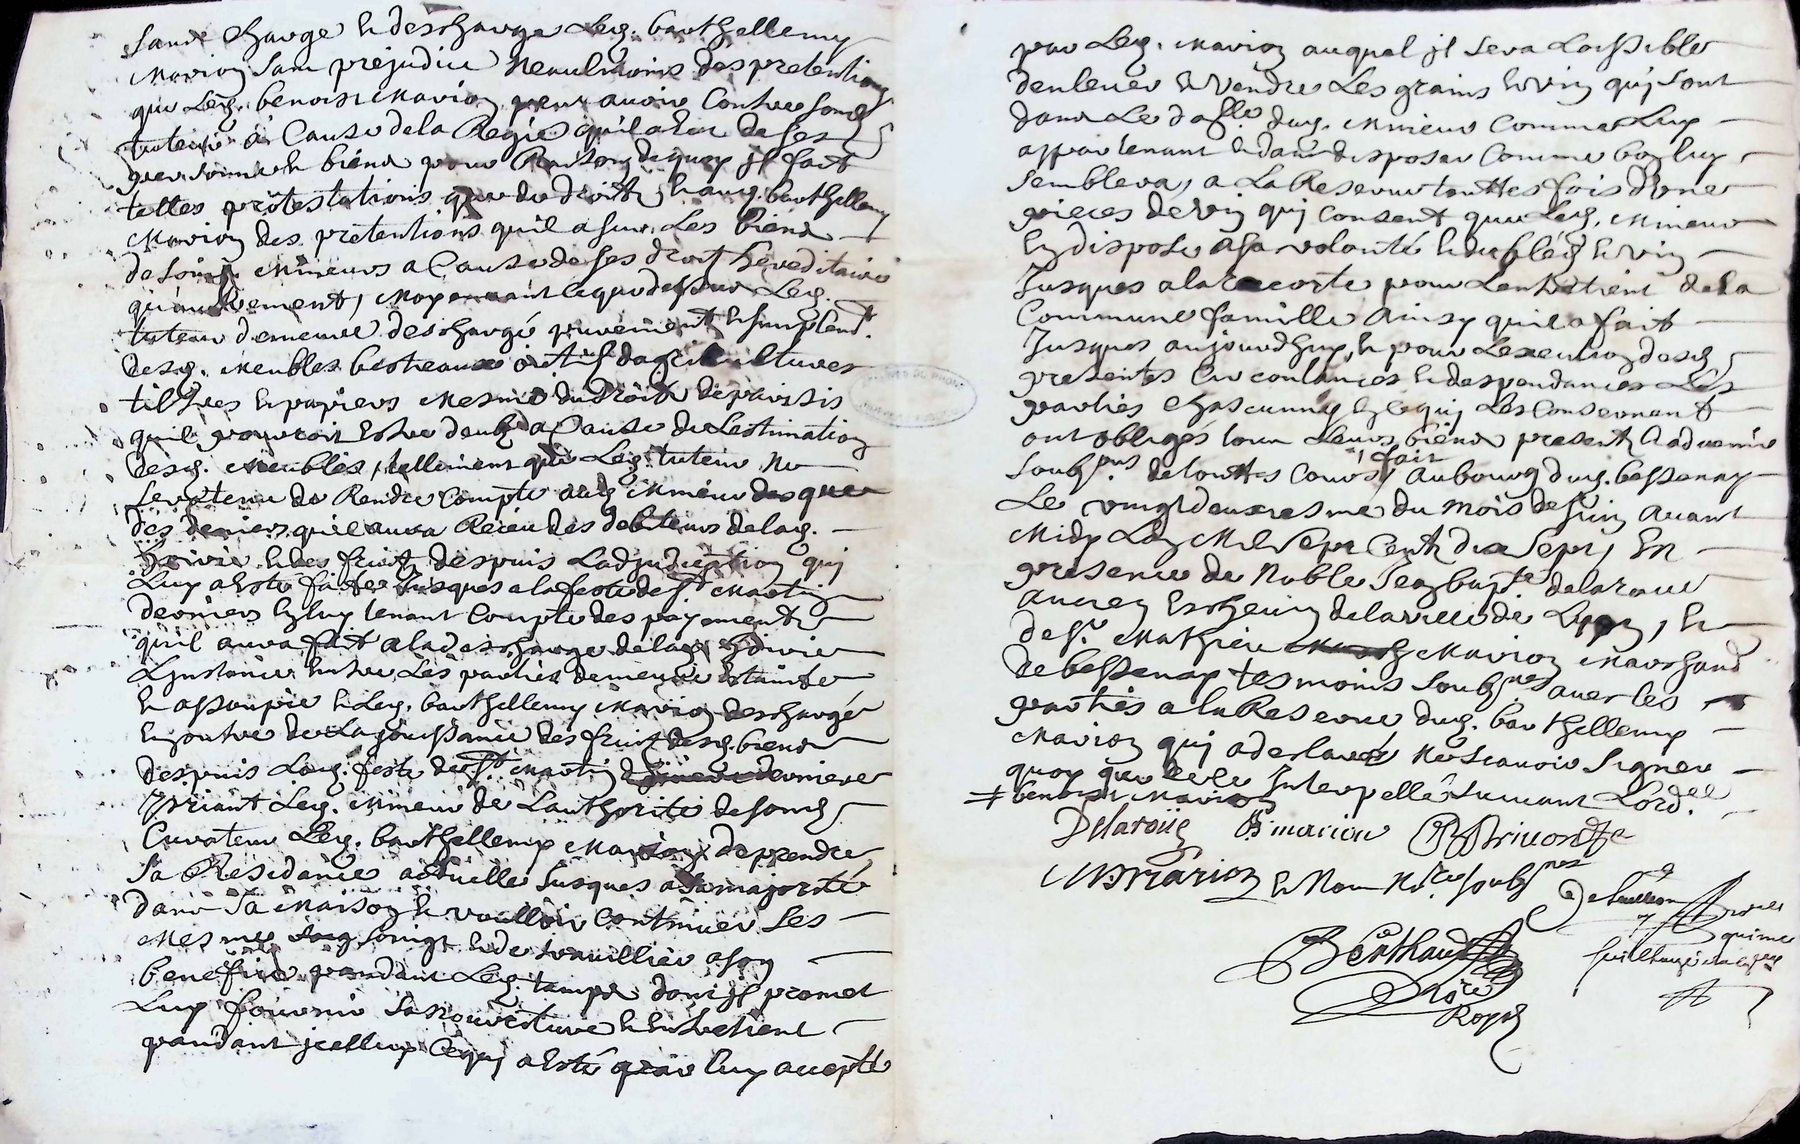 sande charge et descharge led. barthellemy
Marion sans prejudice neaulmoins des pretentions
que led. benoist Marion peut avoir contre sond.
tuteur a cause de la Regie qu'il a eu de ses
personne et biens pour Raison dequoy il fait
telles protestations que de droitz, et aud. barthellemy
Marion des pretentions qu'il a sur les biens
de sond. Mineurs a cause de ses droit hereditaire
qu'autrement, moyennant ce que dessus led.
tuteur demeure deschargé purement et simplemt.
desd. meubles bestiaux outils dagricultures
tiltres et papiers mesme du droit de parisis
quil pourroit estre deub a cause de lestimation
desd. meubles, tellement que led. tuteur ne
sera tenu de Rendre compte aud. mineur des que
des deniers quil aura Receu des debiteurs de lad.
hoirie et des fruitz despuis ladjudication qui
luy a esté faite jusques a la feste de st Martin
derniers en luy tenant compte des payements
quil aura fait a la descharge de lad. hoirie
Linstance entre les parties demeure estainte
et assoupie et led. barthellemy Marion deschargé
en outre de la jouissance des fruit desd. biens
despuis lad. feste de st Martin derniere
Priant led. mineur de lauthorité de sond.
Curateur led. barthellemy Marion de prendre
sa Residance actuelle jusques a sa majorité
dans sa maison et voulloir continuer les
mesmes soings et de travaillier a son
benefice pandant led. temps dont il promet
luy fournir sa nourriture et entretient
pandant icelluy ce qui a esté par luy accepté
par led. Marion auquel il sera loissible
denlever et vendre les grains et vin qui sont
dans le dud. mineur comme luy
appartenant et dans disposer comme bon luy
semblera, a la Reserve touttes fois d'une
pieces de vin qui consent que led. mineur
en dispose a sa volonté et du bled et vin
jusques a la recorte pour lentretient de la
commune famille ainsy quil a fait
jusques aujourdhuy, et pour lexecution desd.
presentes circonstances et despendances les
parties chascunne en ce qui les consernent
ont obligés tous leurs biens present et advenir
soubz. de touttes cours, fait au bourg dud. bessenay
le vingt deuxiesme du mois de juin avant
midy lan mil sept centz dix sept, en
presence de noble Jean bapte delaroue
ancien eschevin de la ville de Lyon, et
de sr. Mathieu Marion Marchand
de bessenay tesmoins soubznes avec les
parties a la Reserve dud. barthellemy
Marion qui a declaré ne scavoir signer
quoy que de ce interpellé suivant lordce
≠ benoist Marion
Delaroüe B marion
M Marion et Nous Nore soubznes
Berthaud
Nore
Royal